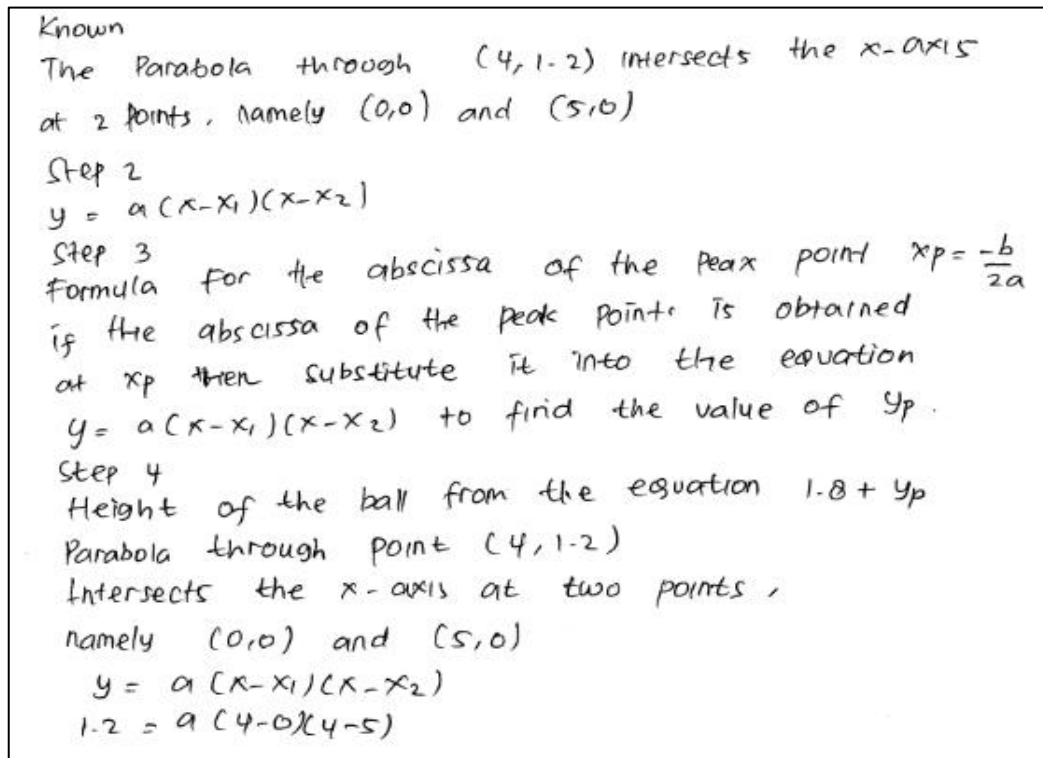 Known
The Parabola through (4, 1.2) intersects the x-axis
at 2 points, namely (0,0) and (5,0)
Step 2
y = a(x-x₁)(x-x₂)
Step 3
Formula for the abscissa of the peax point xp = -b/2a
if the abscissa of the peak points is obtained
at xp then substitute it into the equation
y = a(x-x₁)(x-x₂) to find the value of yp.
Step 4
Height of the ball from the equation 1.8 + yp
Parabola through point (4, 1.2)
Intersects the x-axis at two points,
namely (0,0) and (5,0)
y = a(x-x₁)(x-x₂)
1.2 = a(4-0)(4-5)